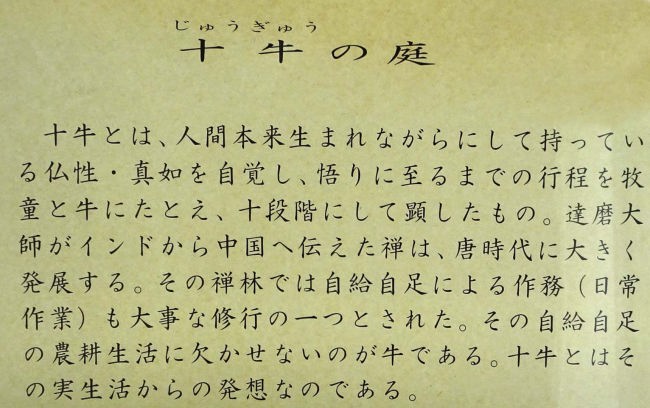 じゅうぎゅう
十牛の庭
十牛とは、人間本来生まれながらにして持ってい
る仏性・真如を自覚し、悟りに至るまでの行程を牧
童と牛にたとえ、十段階にして顕したもの。達磨大
師がインドから中国へ伝えた禅は、唐時代に大きく
発展する。その禅林では自給自足による作務（日常
作業）も大事な修行の一つとされた。その自給自足
の農耕生活に欠かせないのが牛である。十牛とはそ
の実生活からの発想なのである。